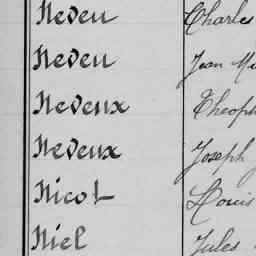 Neveu Charles
Neveu Jean
Neveux
Neveux Joseph
Nicot Louis
Niel Jules